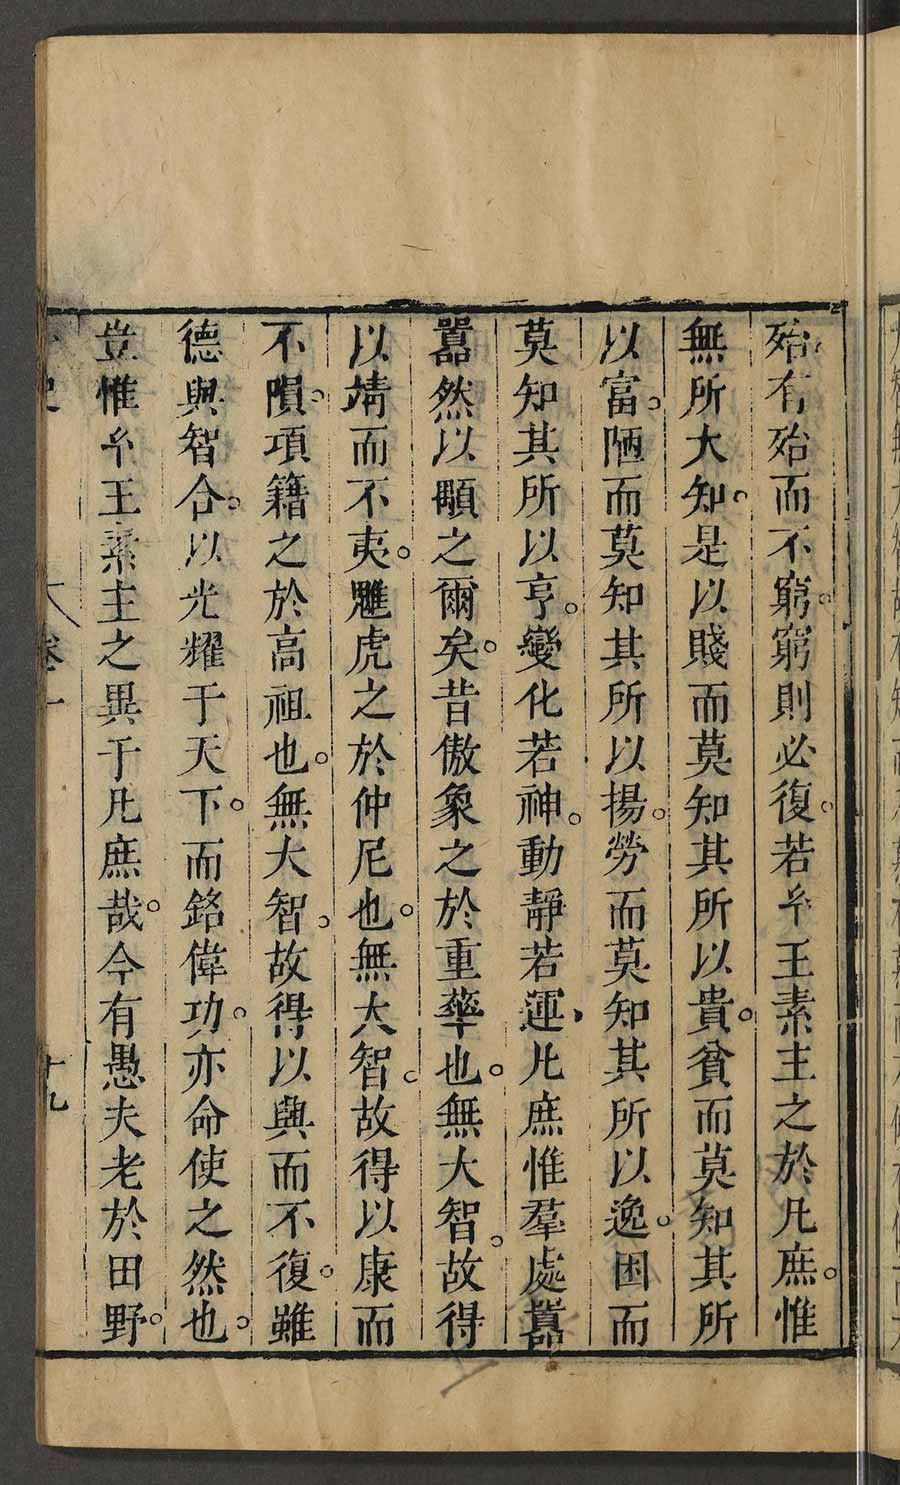 殆。有殆而不窮。窮則必復。若玄王素主之於凡庶。惟
無所大知。是以賤而莫知其所以貴。貧而莫知其所
以富。陋而莫知其所以揚。勞而莫知其所以逸。困而
莫知其所以亨。變化若神。動靜若運。凡庶惟羣處囂
囂然以顒之爾矣。昔傲象之於重華也。無大智。故得
以靖而不夷。魋虎之於仲尼也。無大智。故得以康而
不隕。項籍之於高祖也。無大智。故得以興而不復。雖
德與智合。以光耀于天下。而銘偉功。亦命使之然也。
豈惟玄王素主之異于凡庶哉。今有愚夫老於田野。
卷一
十九